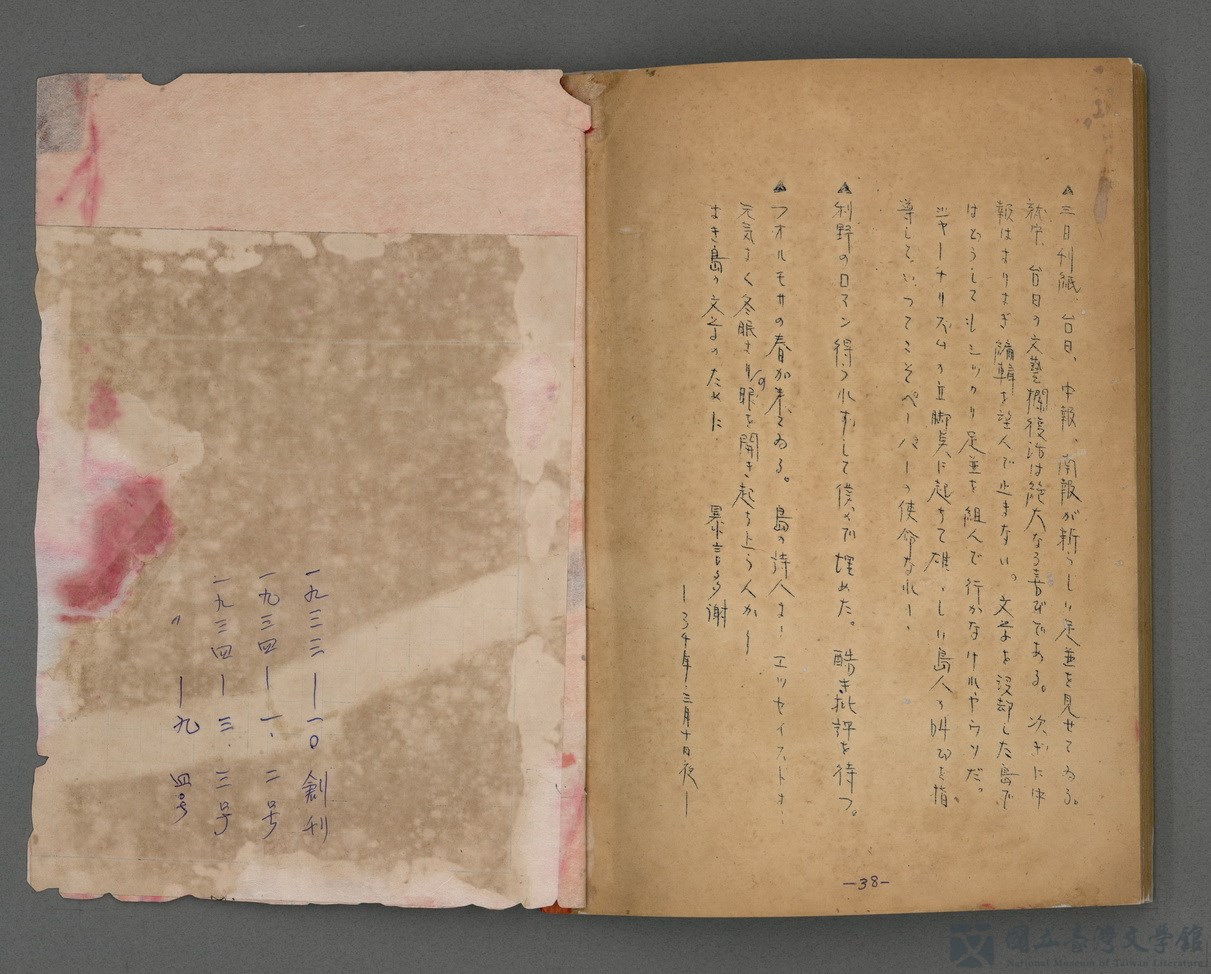 ▲三日刊紙、台日、中報、南報が新らしい足並を見せてゐる。
就中、台日の文藝欄復活は絶大なる喜びである。次ぎに中
報はオリヂナル編輯を望んで止まない。文学を没却した島で
はどうしてもシツカリ足並を組んで行かなけれやウソだ。
ジャーナリズムの立脚点に起ちて雄々しい島人の叫びを指
導して、いつてこそペーパーの使命なれ！
▲利野のロマン得られずして僕ので埋めた。酷き批評を待つ。
▲フオルモサの春が来てゐる。島の詩人よ！エツセイストよ！
元気よく冬眠よりの眼を開き起ち上らんか！
よき島の文学のために 暴言多謝
―34年・三月十日夜―
―38―
一九三三―一〇創刊
一九三四―一、二号
一九三四―三、三号
〃―九 四号
國立臺灣文學館
National Museum of Taiwan Literature